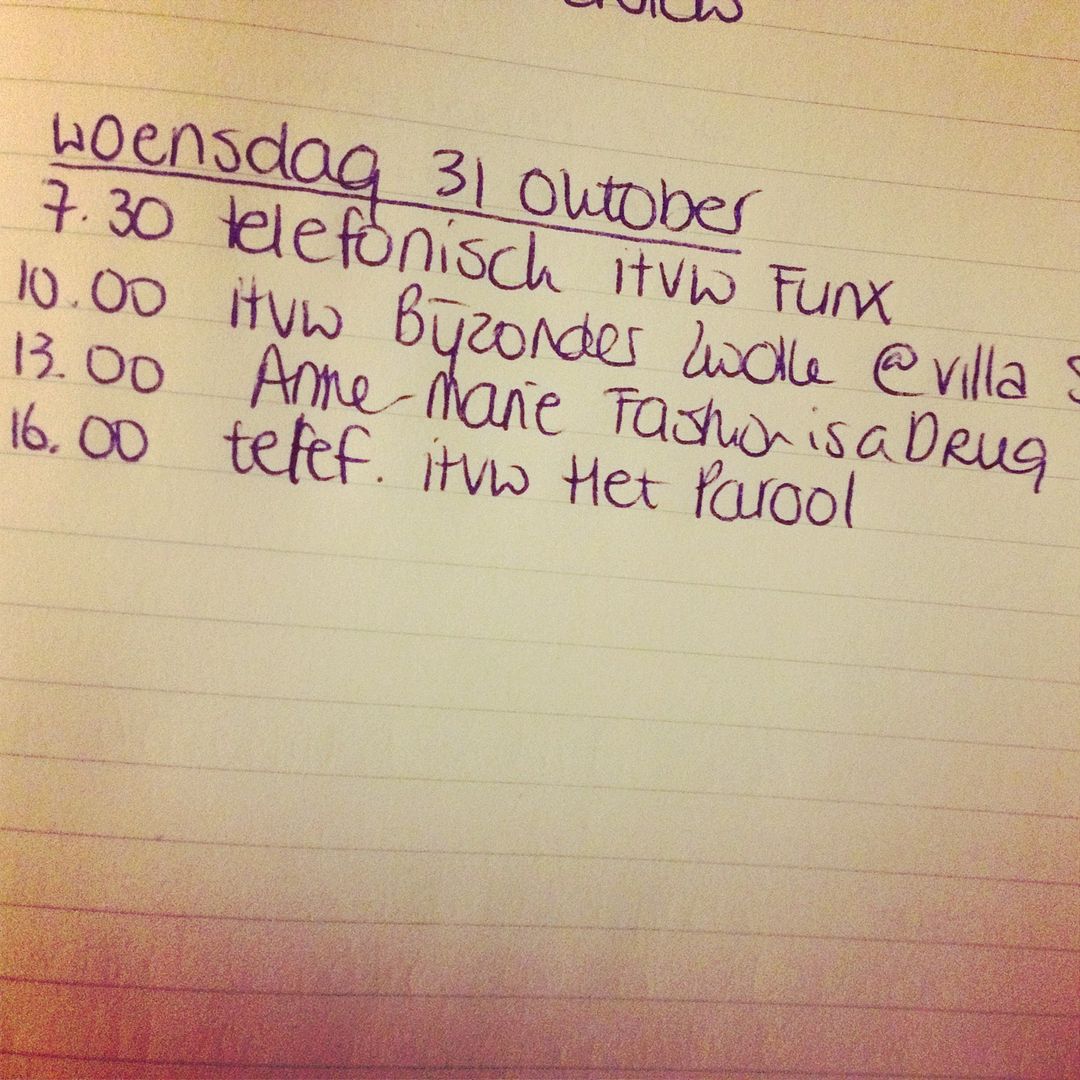 woensdag 31 oktober
7.30 telefonisch itvw FunX
10.00 itvw Bijzonder Zwolle @villa
13.00 Anne-Marie Fashion is a Drug
16.00 telef. itvw Het Parool